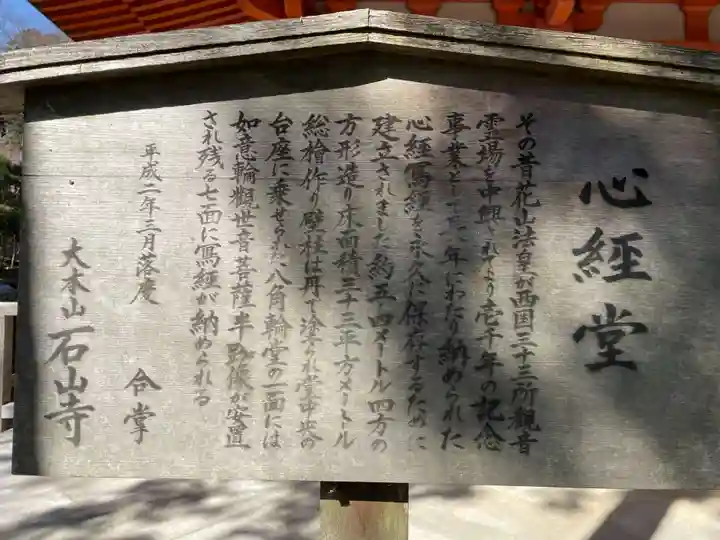 心經堂
その昔花山法皇が西国三十三所觀音
霊場を中興されてより壱千年の記念
事業として八年にわたり納められた
心経寫経を永久に保存するために
建立されました約五・四メートル四方の
方形造り床面積三十三平方メートル
総檜作り壁柱は丹で塗られ堂中央の
台座に乗せられた八角輪堂の一面には
如意輪觀世音菩薩半跏像が安置
され残る七面に寫経が納められる
平成二年三月落慶
合掌
大本山石山寺